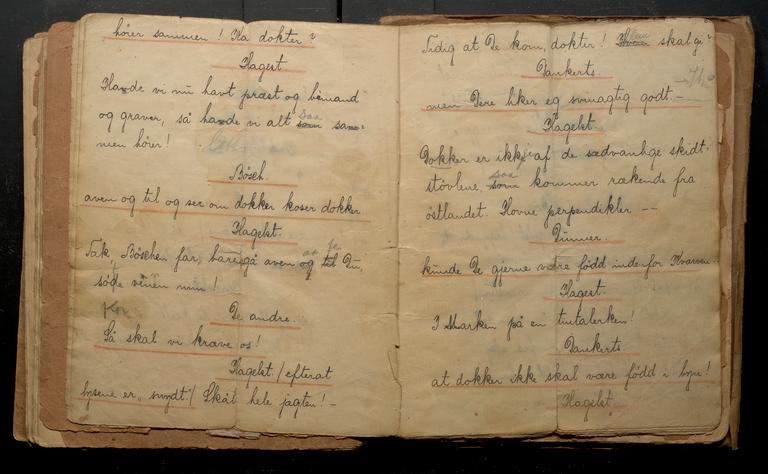 hörer sammen! Ka dokter?
Hagelst.
Havde vi nu havt præst og bémand
og graver, så havde vi alt som saa sam-
men hører!
Bösch.
aven og til og ser om dokker koser dokker
Hagelst.
Tak, Böschen far, bare gå aven og til Du,
söde vennen min!
Kor
De andre.
Så skal vi kræve os!
Hagelst. / efterat
lysene er "snydt"/ Skål hele jagten! –
Tidig at De kom, dokter! Hvem skal gi?
Dankerts.
men Dere liker eg svinagtig godt. –
Hagelst.
Dokker er ikkje af de sædvanlige skidt-
stövlene som saa kommer rækende fra
östlandet. Hovne perpendikler --
Dunner.
kunde De gjerne være född indenfor Hvarven...
Hagelst.
I Marken på en tintalerken!
Dankerts.
at dokker ikke skal være född i byn!
Hagelst.